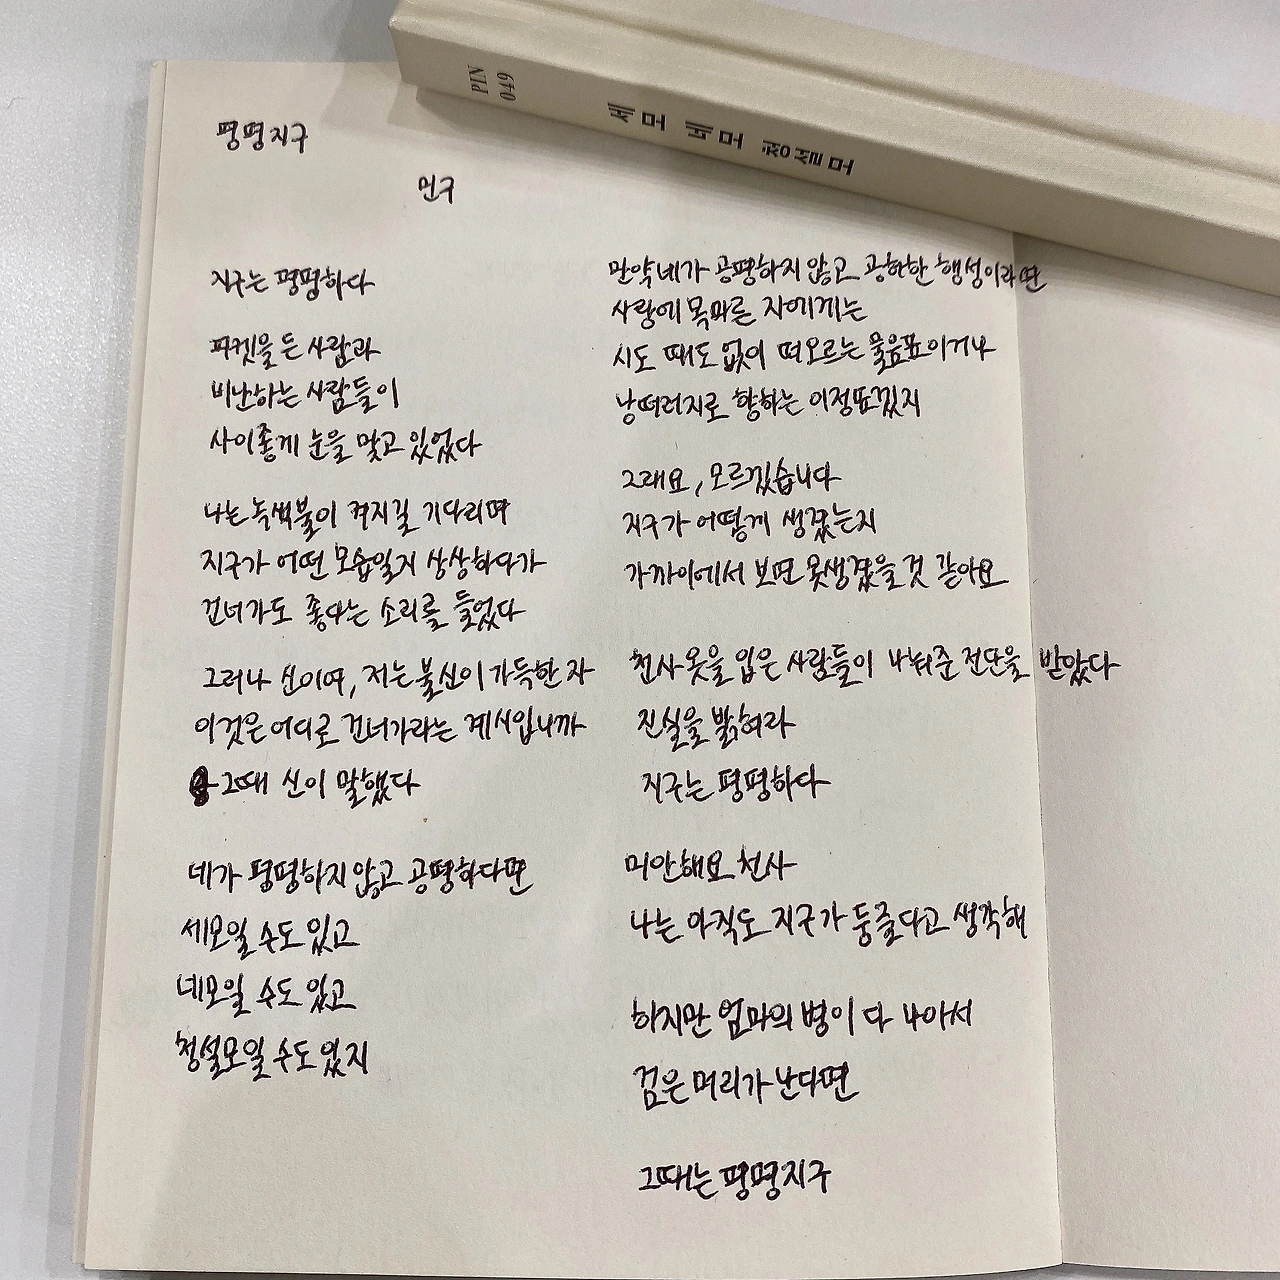 PIN
049
세모 네모 청설모
평평지구
민구
지구는 평평하다
피켓을 든 사람과
비난하는 사람들이
사이좋게 눈을 맞고 있었다
나는 녹색불이 켜지길 기다리며
지구가 어떤 모습일지 상상하다가
건너가도 좋다는 소리를 들었다
그러나 신이여, 저는 불신이 가득한 자
이것은 어디로 건너가라는 계시입니까
그때 신이 말했다
네가 평평하지 않고 공평하다면
세모일 수도 있고
네모일 수도 있고
청설모일 수도 있지
만약 네가 공평하지 않고 광활한 행성이라면
사랑에 목마른 자에게는
시도 때도 없이 떠오르는 물음표이거나
낭떠러지로 향하는 이정표겠지
그래요, 모르겠습니다
지구가 어떻게 생겼는지
가까이에서 보면 못생겼을 것 같아요
천사 옷을 입은 사람들이 나눠준 전단을 받았다
진실을 밝혀라
지구는 평평하다
미안해요 천사
나는 아직도 지구가 둥글다고 생각해
하지만 엄마의 병이 다 나아서
검은 머리가 난다면
그때는 평평지구